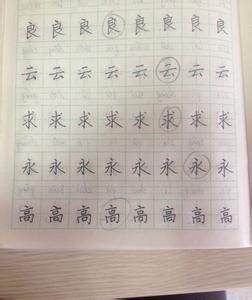 良良良良良良良良
云云云云云云云云
求求求求求求求求
永永永永永永永永
高高高高高高高高